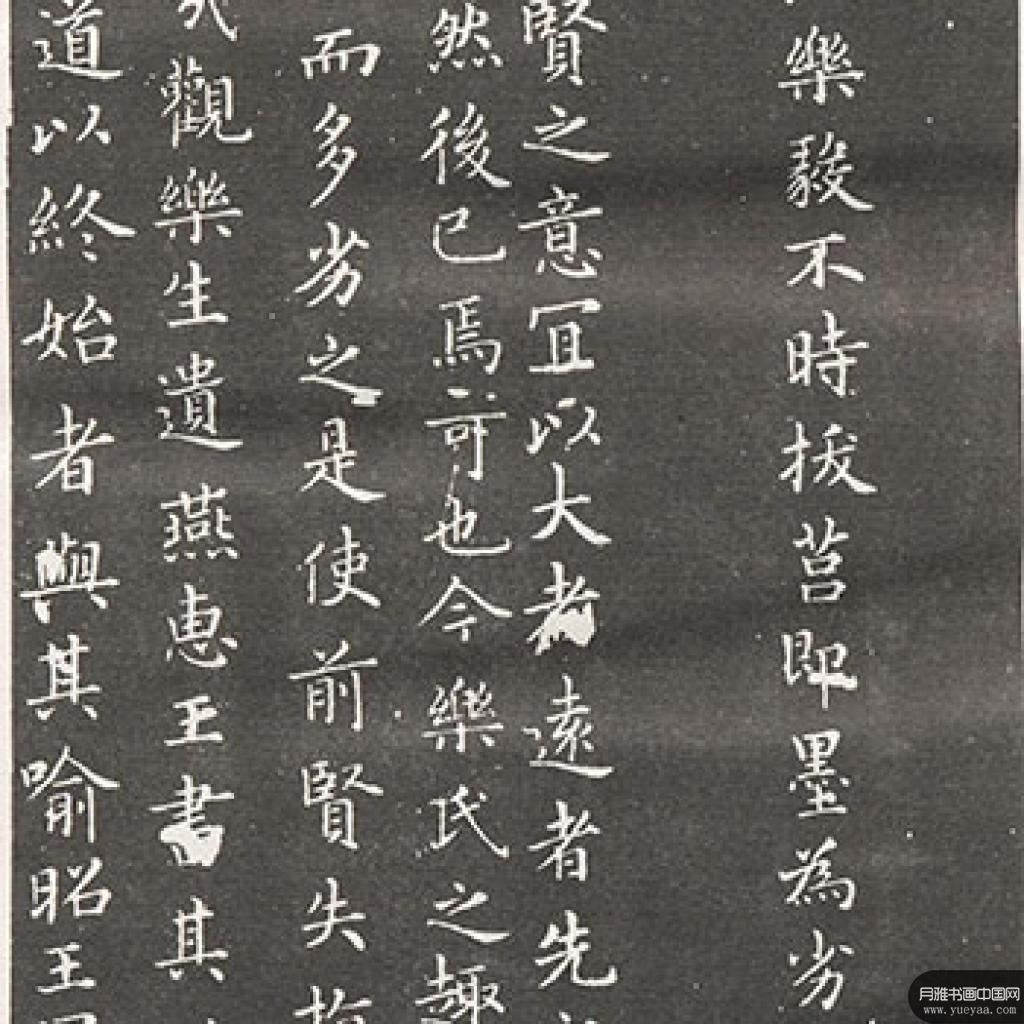 樂毅不時拔莒即墨為劣
賢之意冝以大者遠者先
然後已焉可也今樂氏之趣
而多劣之是使前賢失指
觀樂生遺燕恵王書其
道以終始者與其喻昭王
月雅书画中国网
www.yueyaa.com